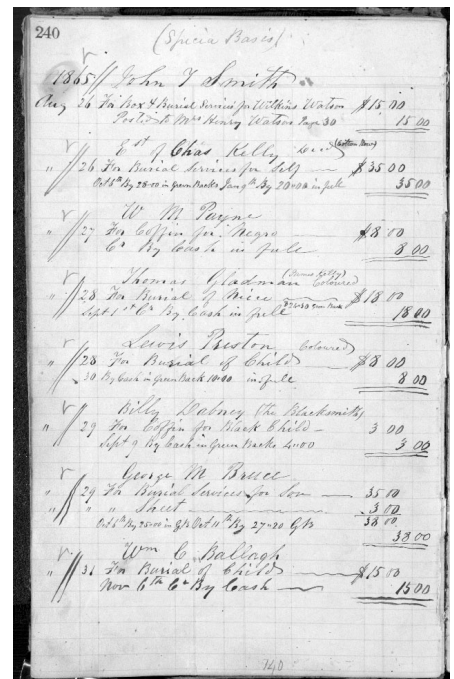 240
(Specia Basis)
1865 // John T Smith
Aug 26 For Box & Burial Services for Wilkins Watson $15.00
Posted to Mrs Henry Watson Page 30 15 00
Est of Chas Kelly Decd
" // 26 For Burial Services for Self — $35 00
Oct 5th By 28=00 in Green Backs By 20=00 in full 35 00
W M Payne
" // 27 For Coffin for Negro — $8 00
Cr By Cash in full 8 00
Thomas Gladman Coloured
" // 28 For Burial of Niece — $18 00
Sept 1st Cr By Cash in full 18 00
Lewis Preston Coloured
" // 28 For Burial of Child — $8 00
30 By Cash in Green Back 10=00 in full 8 00
Billy Dabney (the Blacksmith)
" // 29 For Coffin for Black Child — 3 00
Sept 9 By Cash in Green Backs 4=00 3 00
George M Bruce
" // 29 For Burial Services for Son — 35 00
" // " " Sheet — 3 00
38 00
Oct 5th By 25=00 in GB Oct 11th By 27=20 GB
38 00
Wm C Ballagh
" // 31 For Burial of Child — $15 00
Nov 6th Cr By Cash — 15 00
140